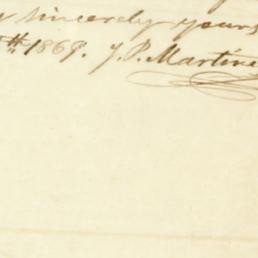 sincerely yours
th 1869. J. P. Martine